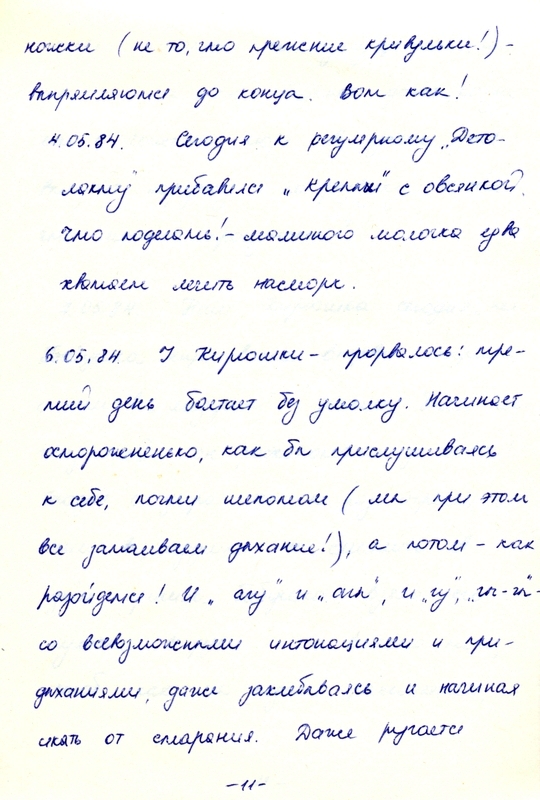 ножки (не то, что прежние кривульки!) -
выпрямляются до конца. Вот как!
4.05.84. Сегодня к регулярному „Дето-
лакту" прибавился „Крепыш" с овсянкой.
Что поделать! - маминого молочка едва
хватает лечить насморк.
6.05.84 У Кирюшки - прорвалось: тре-
тий день болтает без умолку. Начинает
осторожненько, как бы прислушиваясь
к себе, почти шепотом (мы при этом
все затаиваем дыхание!), а потом - как
разойдется! И „агу" и „агы", и „гу", „гы-гы"-
со всевозможными интонациями и при-
дыханиями, даже захлебываясь и начиная
икать от старания. Даже ругается
-11-